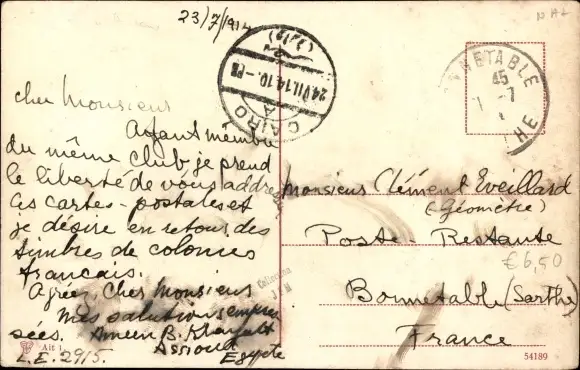 23/7/1914
cher Monsieur
Ayant membre
du même club je prend
le liberté de vous addre
ces cartes-postales et
je désire en retour des
timbres de colonies
francais.
Agréez, Cher Monsieur
mes salutations empres
sées. Ameen B. Khayatt
Assiout
Egypte
L.E. 2915.
CAIRO
24.VII.14.10-
BONNETABLE
45
-7
THE
Monsieur Clément Eveillard
(Géomètre)
Poste-Restante
€6,50
Bonnetable (Sarthe)
France
Collection
54189